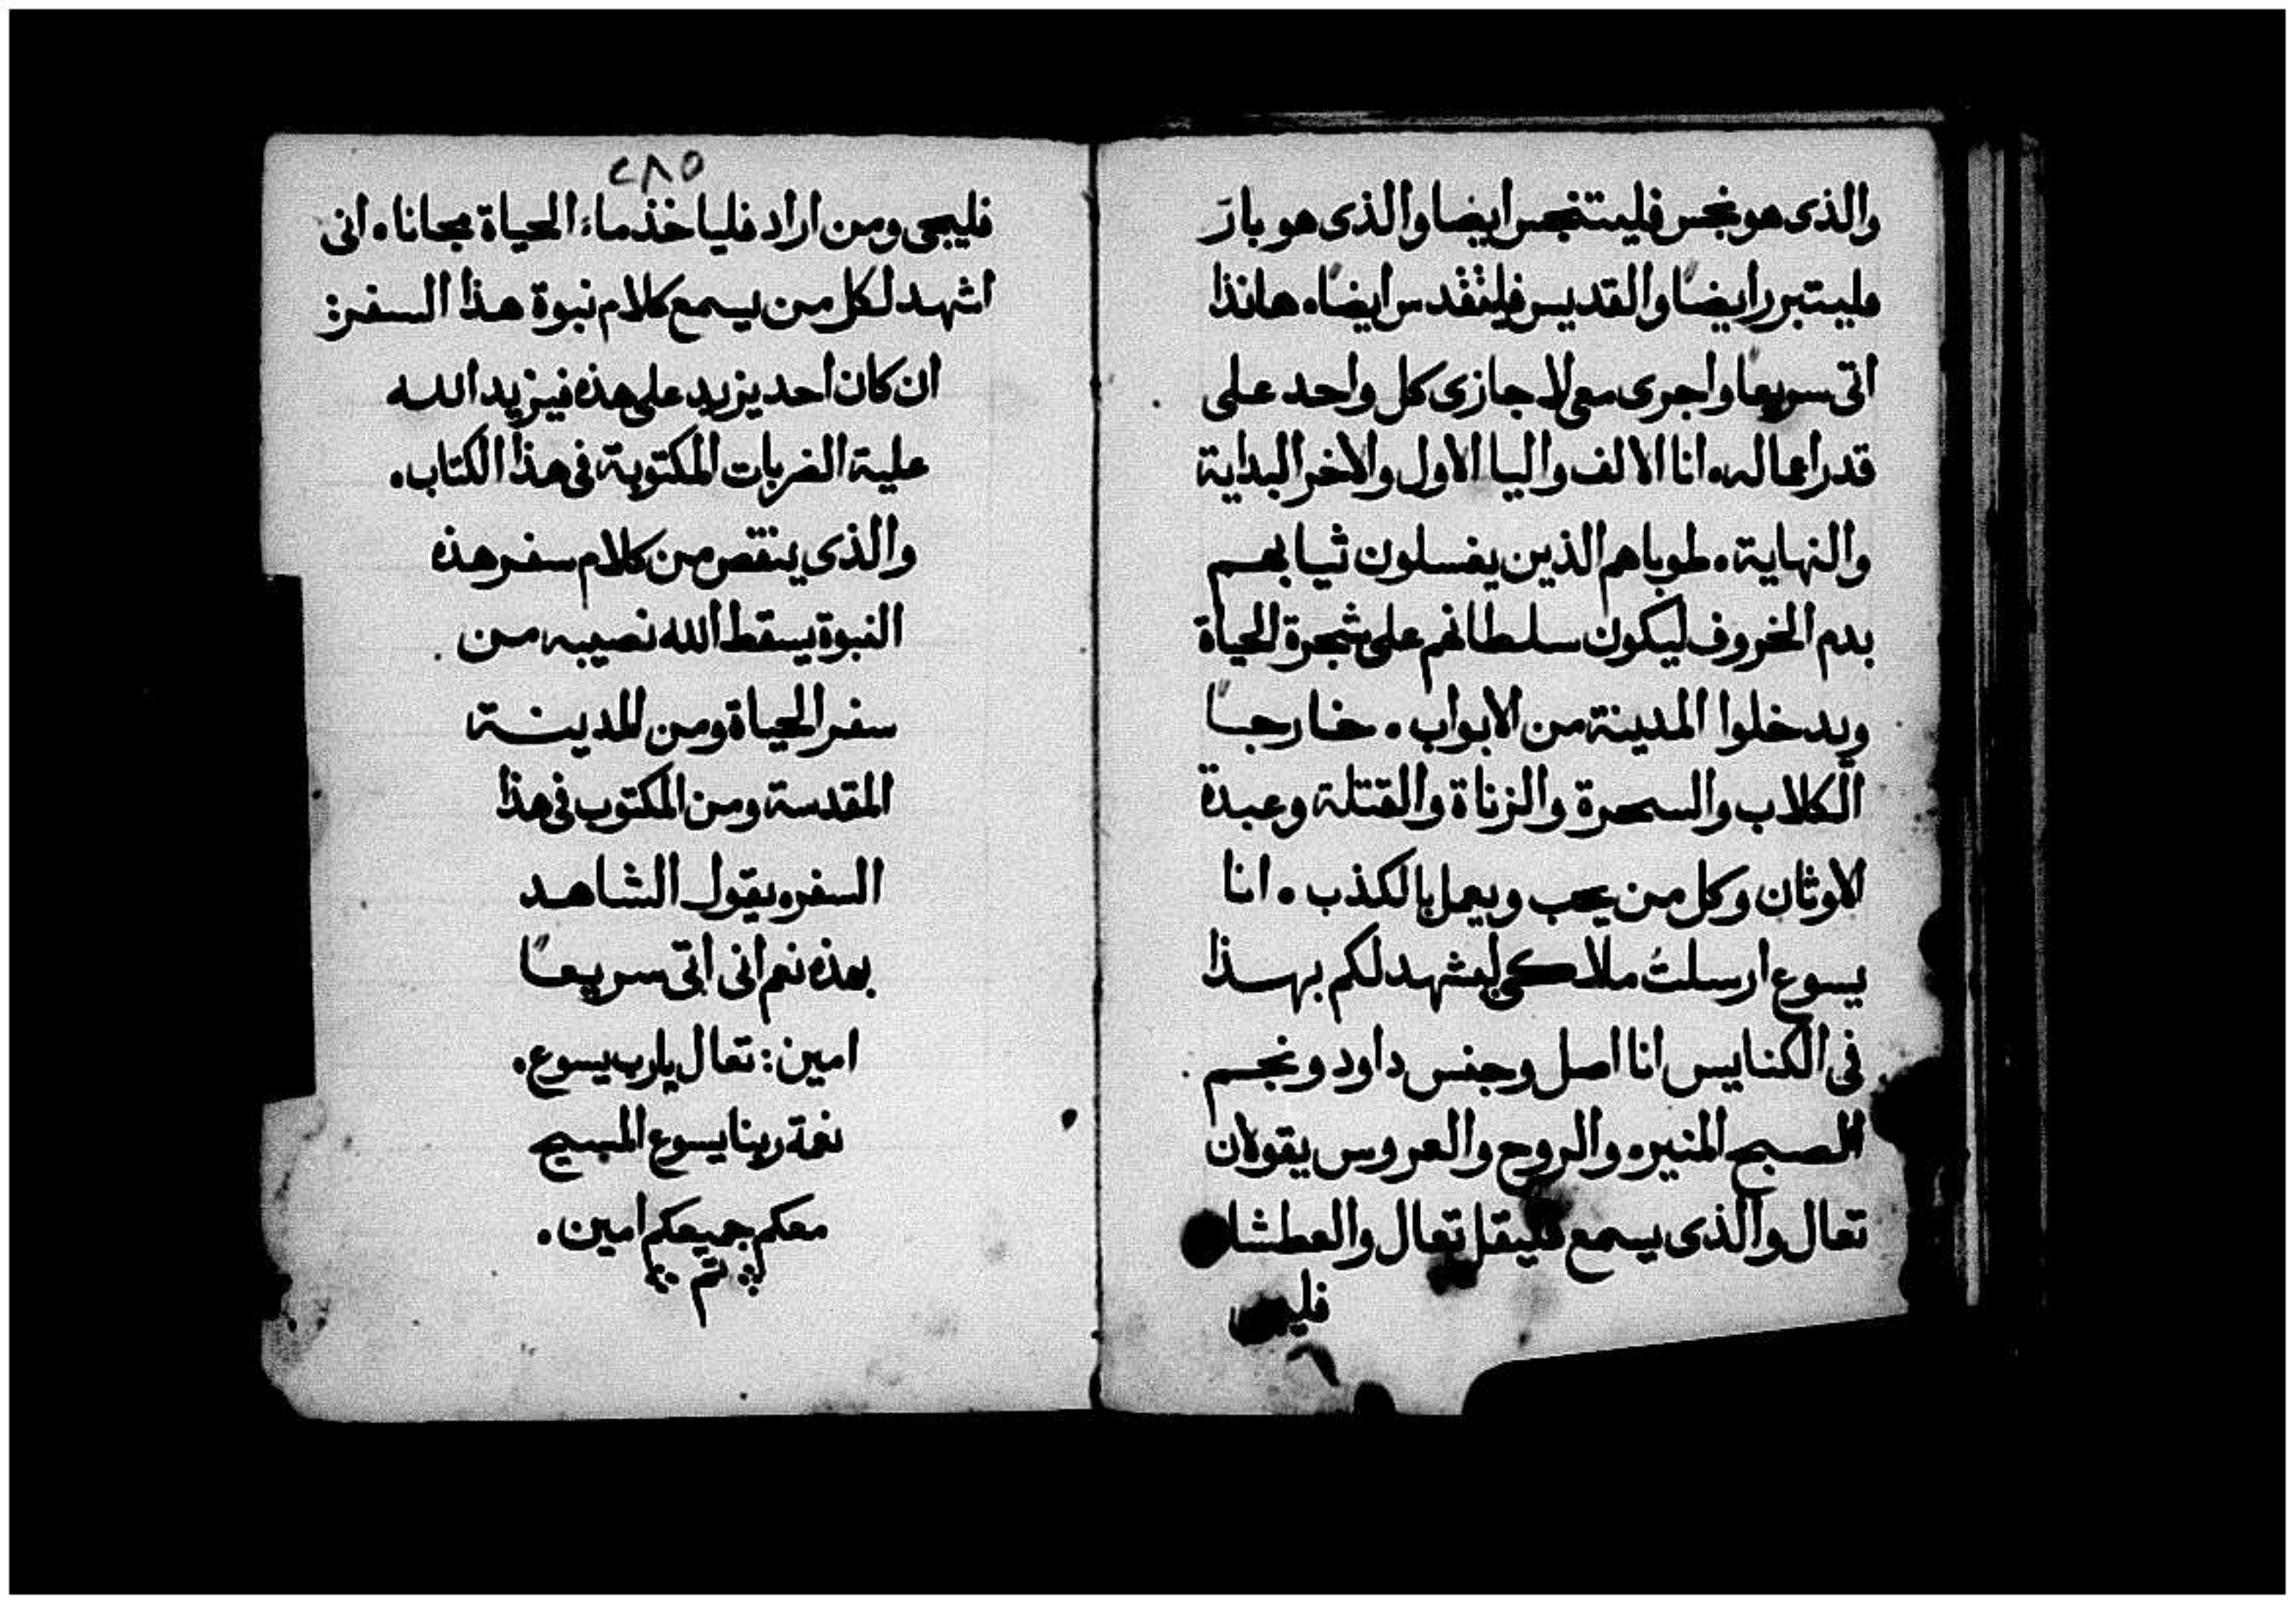 والذى هو نجس فليتنجس ايضا والذى هو بارَ
فليتبرر ايضًا والقديس فليتقدس ايضًا. هانذا
اتى سريعًا واجرى معى لاجازى كل واحد على
قدر اعماله. انا الالف واليا الاول والاخر البداية
والنهاية. طوباهم الذين يغسلون ثيابهم
بدم الخروف ليكون سلطانهم على شجرة الحياة
ويدخلوا المدينة من الابواب. خارجًا
الكلاب والسحرة والزناة والقتلة وعبدة
الاوثان وكل من يحب ويعمل بالكذب. انا
يسوع ارسلتُ ملاكى ليشهد لكم بهذا
فى الكنايس انا اصل وجنس داود ونجم
الصبح المنيره والروح والعروس يقولان
تعال والذى يسمع فليقل تعال والعطشا
٢٨٥
فليجى ومن اراد فلياخذ ماء الحياة مجانا. انى
اشهد لكل من يسمع كلام نبوة هذا السفر:
ان كان احد يزيد على هذه فيزيد الله
علية الضربات المكتوبة فى هذا الكتاب.
والذى ينقص من كلام سفر هذه
النبوة يسقط الله نصيبه من
سفر الحياة ومن المدينة
المقدسة ومن المكتوب فى هذا
السفره يقول الشاهد
بهذه نعم انى اتى سريعًا
امين: تعال يارب يسوع.
نعمة ربنا يسوع المسيح
معكم جميعكم امين.
تم